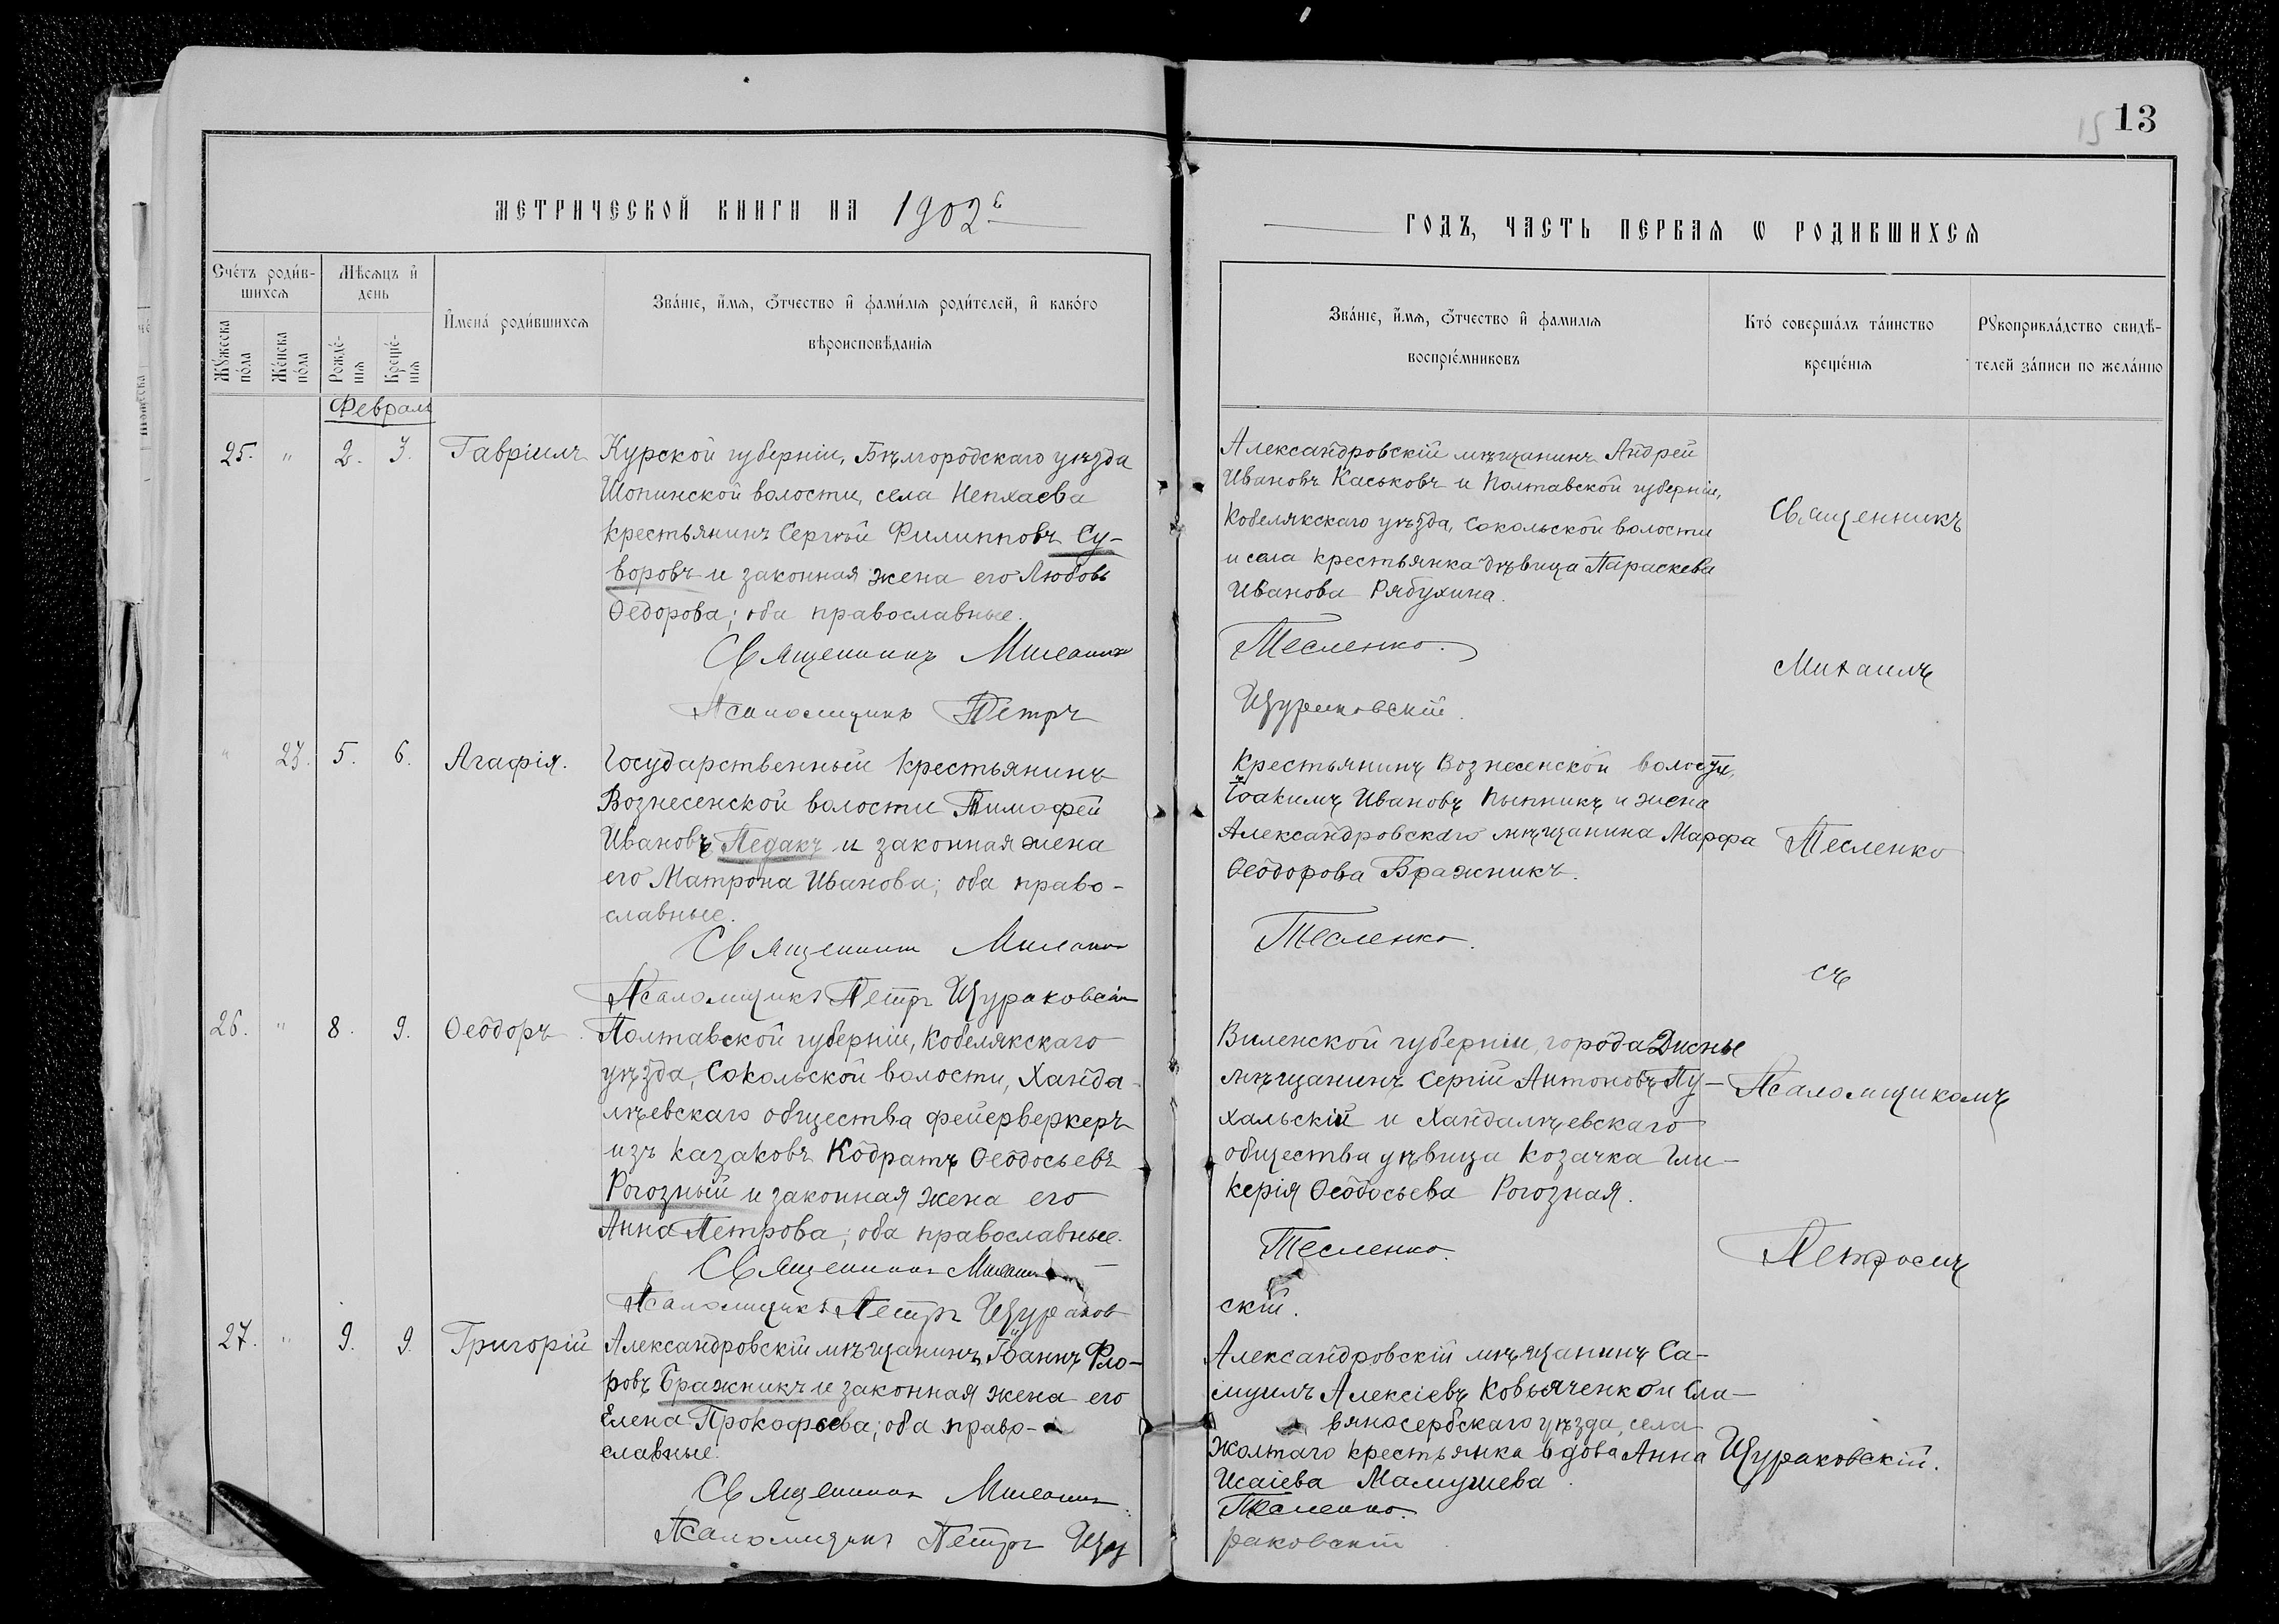 13
15
МЕТРИЧЕСКОЙ КНИГИ НА 1902й
ГОДЪ, ЧАСТЬ ПЕРВАЯ Ѡ РОДИВШИХСЯ
Счétъ роди́в-
шихся
Му́жеска по́ла
Же́нска по́ла
Мѣсяцъ и день
Рожде́-
нія
Креще́-
нія
Имена́ роди́вшихся
Зва́ніе, и́мя, о́тчество и фами́лія роди́телей, и како́го
вѣроисповѣ́данія
Зва́ніе, и́мя, о́тчество и фамилія
воспріе́мниковъ
Кто́ соверша́лъ та́инство
креще́нія
Рукоприкла́дство свидѣ́-
телей за́писи по жела́нію
Февраль
25. " 2. 3. Гавріилъ
Курской губерніи, Бѣлгородскаго уѣзда
Шопинской волости, села Непхаева
крестьянинъ Сергѣй Филипповъ Су-
воровъ и законная жена его Любовь
Ѳедорова; оба православные.
Священникъ Михаилъ
Псаломщикъ Петръ
Александровскій мѣщанинъ Андрей
Ивановъ Каськовъ и Полтавской губерніи,
Кобелякскаго уѣзда, Сокольской волости
и села крестьянка дѣвица Параскева
Иванова Рябухина.
Тесленко.
Щураковскій.
" 23. 5. 6. Агафія.
Государственный крестьянинъ
Вознесенской волости Тимофей
Ивановъ Педакъ и законная жена
его Матрона Иванова; оба право-
славные.
Священникъ Михаилъ
Псаломщикъ Петръ Щураковскій
Крестьянинъ Вознесенской волости,
Іоакимъ Ивановъ Пынникъ и жена
Александровскаго мѣщанина Марфа
Ѳеодорова Бражникъ.
Тесленко.
26. " 8. 9. Ѳеодоръ
Полтавской губерніи, Кобелякскаго
уѣзда, Сокольской волости, Ханда-
лѣевскаго общества фейерверкеръ
изъ казаковъ Кодратъ Ѳеодосьевъ
Рогозный и законная жена его
Анна Петрова; оба православные.
Священникъ Михаилъ
Псаломщикъ Петръ Щураков
Виленской губерніи, города Дисны
мѣщанинъ Сергій Антоновъ Пу-
хальскій и Хандалѣевскаго
общества дѣвица козачка Гли-
керія Ѳеодосьева Рогозная.
Тесленко.
скій.
27. " 9. 9. Григорій
Александровскій мѣщанинъ Іоаннъ Фло-
ровъ Бражникъ и законная жена его
Елена Прокофьева; оба право-
славные.
Священникъ Михаилъ
Псаломщикъ Петръ Щу
Александровскій мѣщанинъ Са-
муилъ Алексіевъ Ковьяченко и Сла-
вяносербскаго уѣзда, села
Жолтаго крестьянка вдова Анна
Исаіева Малушева.
Тесленко.
раковскій
Священникъ
Михаилъ
Тесленко
съ
Псаломщикомъ
Петромъ
Щураковскій.